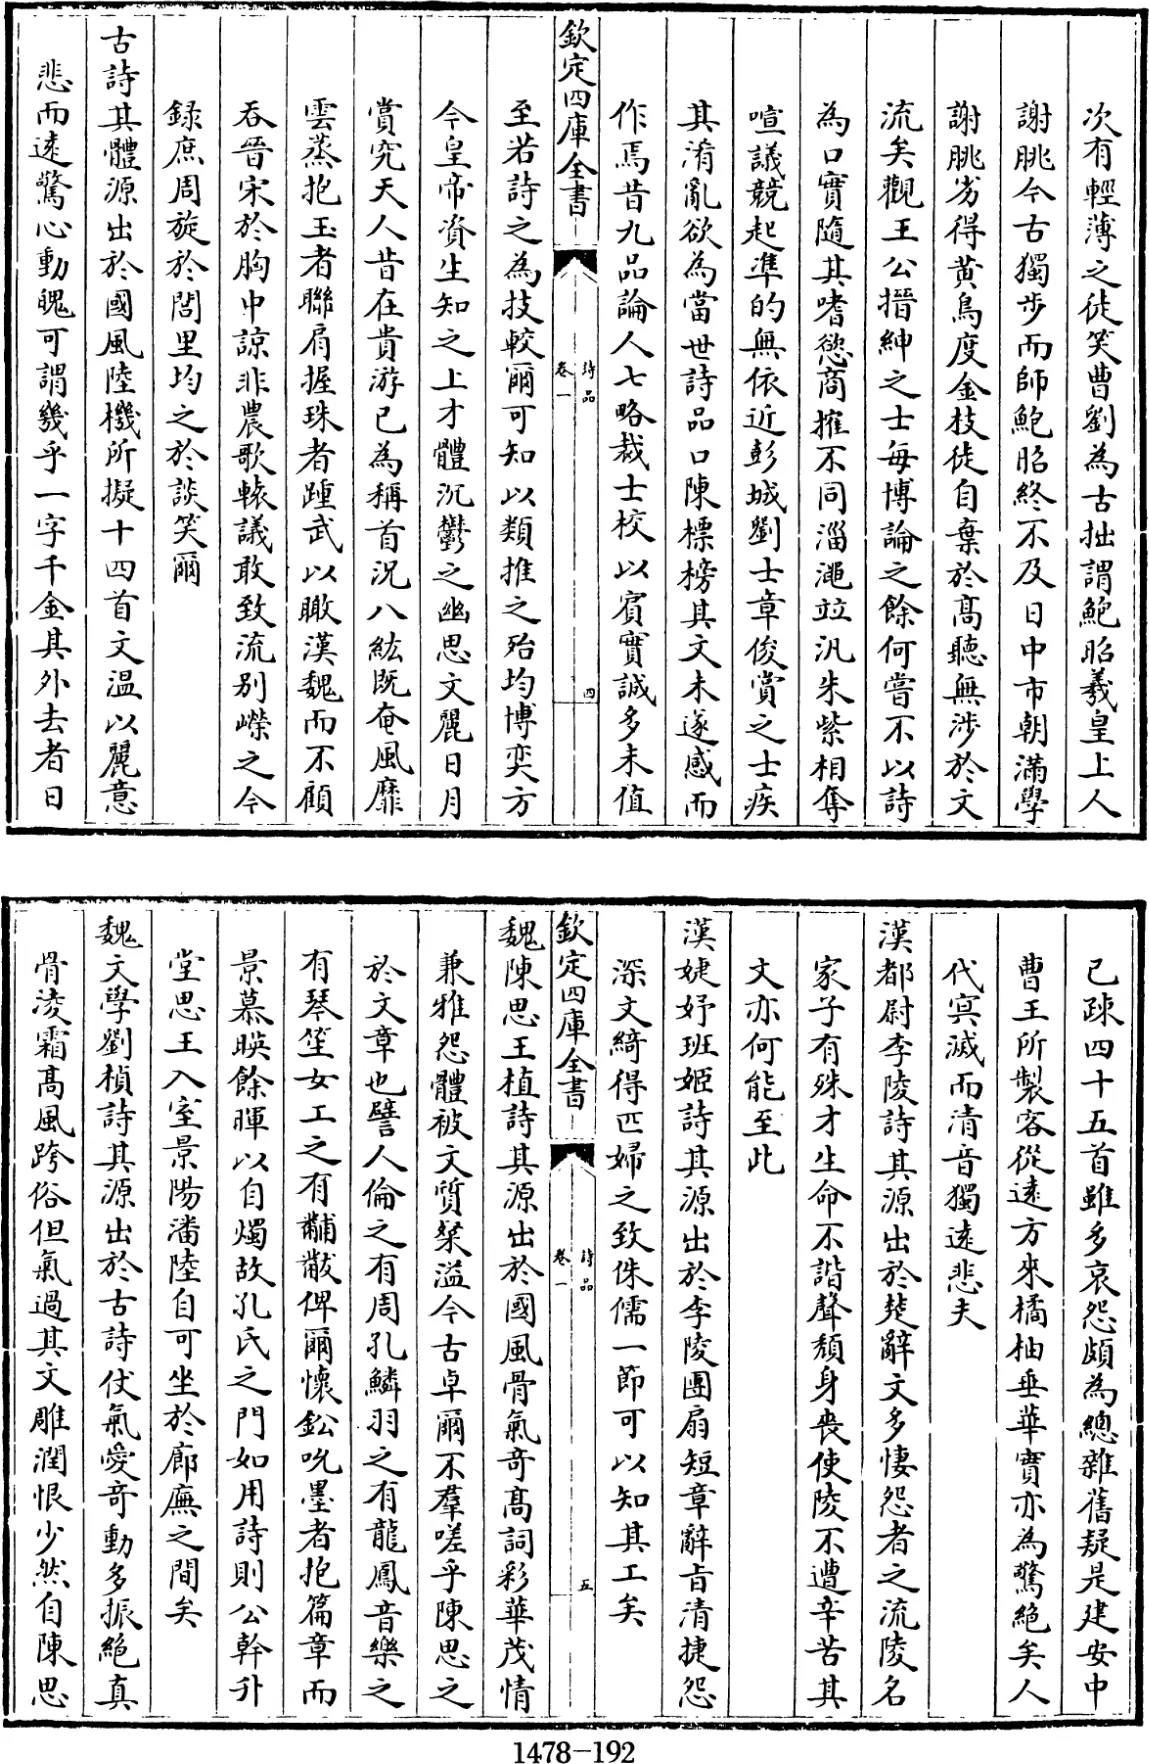 次有輕薄之徒笑曹劉為古拙謂鮑昭羲皇上人
謝朓今古獨步而師鮑昭終不及日中市朝滿學
謝朓劣得黄鳥度金枝徒自棄於髙聽無涉於文
流矣觀王公搢紳之士每博論之餘何嘗不以詩
為口實隨其嗜慾商搉不同淄澠竝汎朱紫相奪
喧議競起凖的無依近彭城劉士章俊賞之士疾
其淆亂欲為當世詩品口陳標榜其文未遂感而
作焉昔九品論人七略裁士校以賓實誠多未值
欽定四庫全書
詩品
卷一
四
至若詩之為技較爾可知以類推之殆均博奕方
今皇帝資生知之上才體沉鬱之幽思文麗日月
賞究天人昔在貴游已為稱首況八紘既奄風靡
雲蒸抱玉者聯肩握珠者踵武以瞰漢魏而不顧
吞晉宋於胸中諒非農歌轅議敢致流别嶸之今
録庶周旋於閭里均之於談笑爾
古詩其體源出於國風陸機所擬十四首文温以麗意
悲而逺驚心動魄可謂幾乎一字千金其外去者日
已疎四十五首雖多哀怨頗為總雜舊疑是建安中
曹王所製客從逺方來橘柚垂華實亦為驚絶矣人
代㝠滅而清音獨逺悲夫
漢都尉李陵詩其源出於楚辭文多悽怨者之流陵名
家子有殊才生命不諧聲頽身喪使陵不遭辛苦其
文亦何能至此
漢婕妤班姬詩其源出於李陵團扇短章辭旨清捷怨
深文綺得匹婦之致侏儒一節可以知其工矣
欽定四庫全書
詩品
卷一
五
魏陳思王植詩其源出於國風骨氣奇髙詞彩華茂情
兼雅怨體被文質粲溢今古卓爾不羣嗟乎陳思之
於文章也譬人倫之有周孔鱗羽之有龍鳳音樂之
有琴笙女工之有黼黻俾爾懷鉛吮墨者抱篇章而
景慕暎餘暉以自燭故孔氏之門如用詩則公幹升
堂思王入室景陽潘陸自可坐於廊廡之間矣
魏文學劉楨詩其源出於古詩仗氣愛奇動多振絶真
骨凌霜髙風跨俗但氣過其文雕潤恨少然自陳思
1478-192